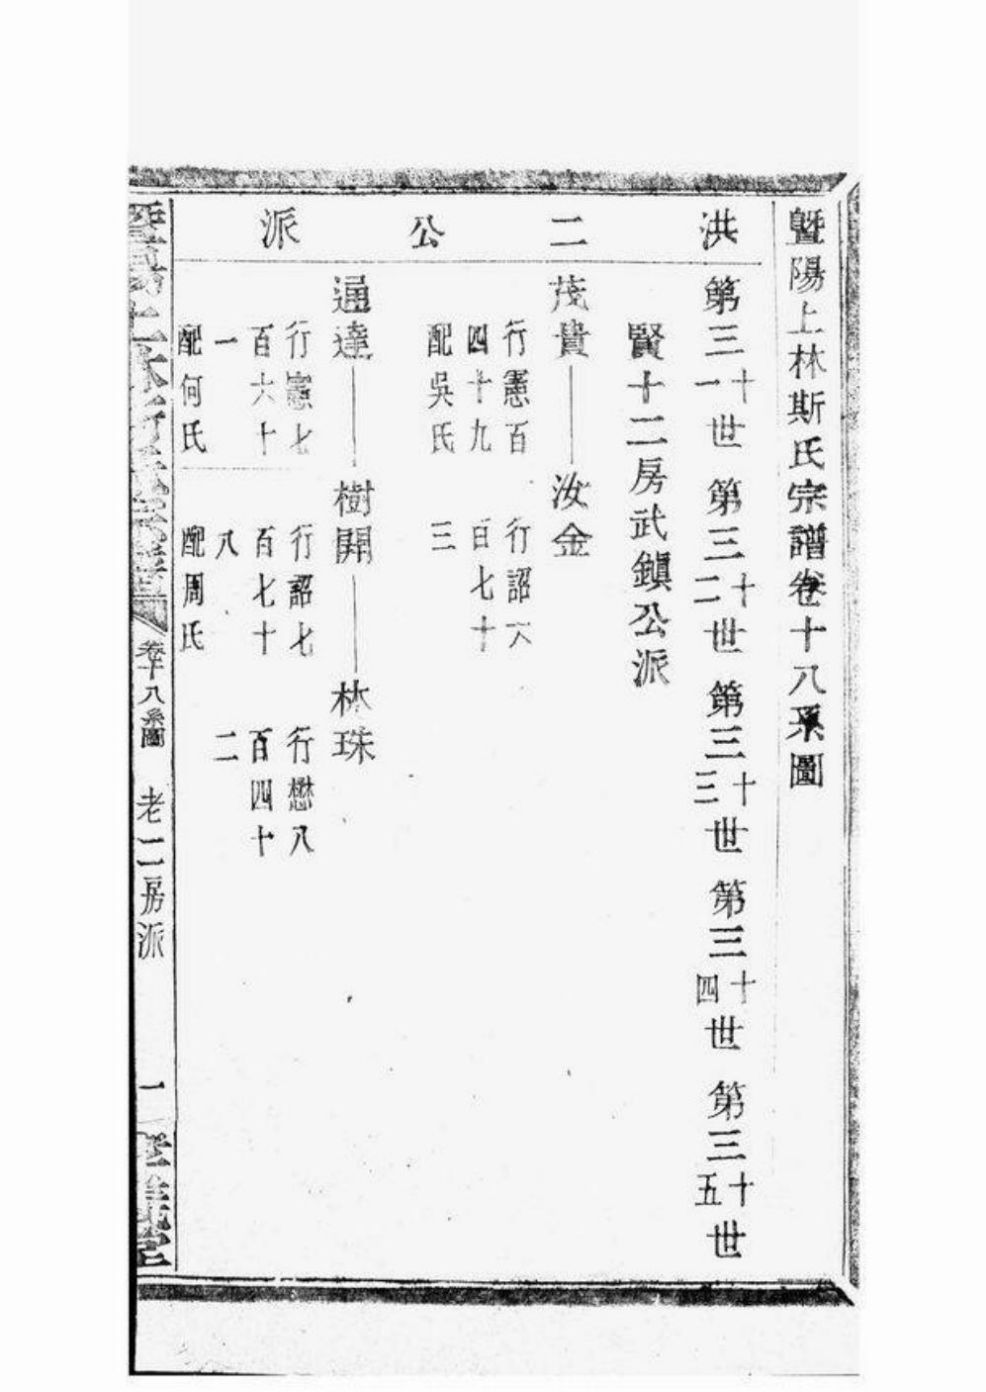 暨陽上林斯氏宗譜卷十八系圖
洪二公派
第三十一世 第三十二世 第三十三世 第三十四世 第三十五世
賢十二房武鎮公派
茂貴——汝金
行憲百四十九
配吳氏
行詔六百七十三
通達——樹開——林珠
行憲七百六十一
配何氏
行詔七百七十八
配周氏
行懋八百四十二
暨陽上林斯氏宗譜
卷十八系圖
老二房派
一
孝義堂